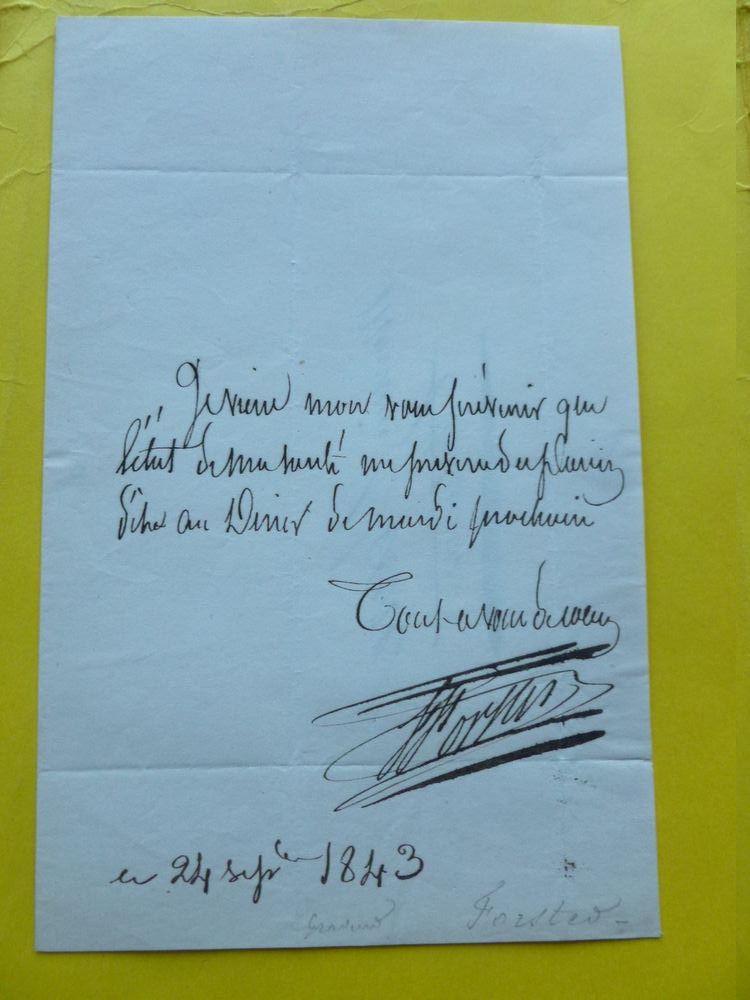 Je viens mon vous prévenir que
l'état de ma santé me prive du plaisir
d'être au Diner de mardi prochain
Tout a vous de coeur
Forster
ce 24 sepbre 1843
graveur Forster